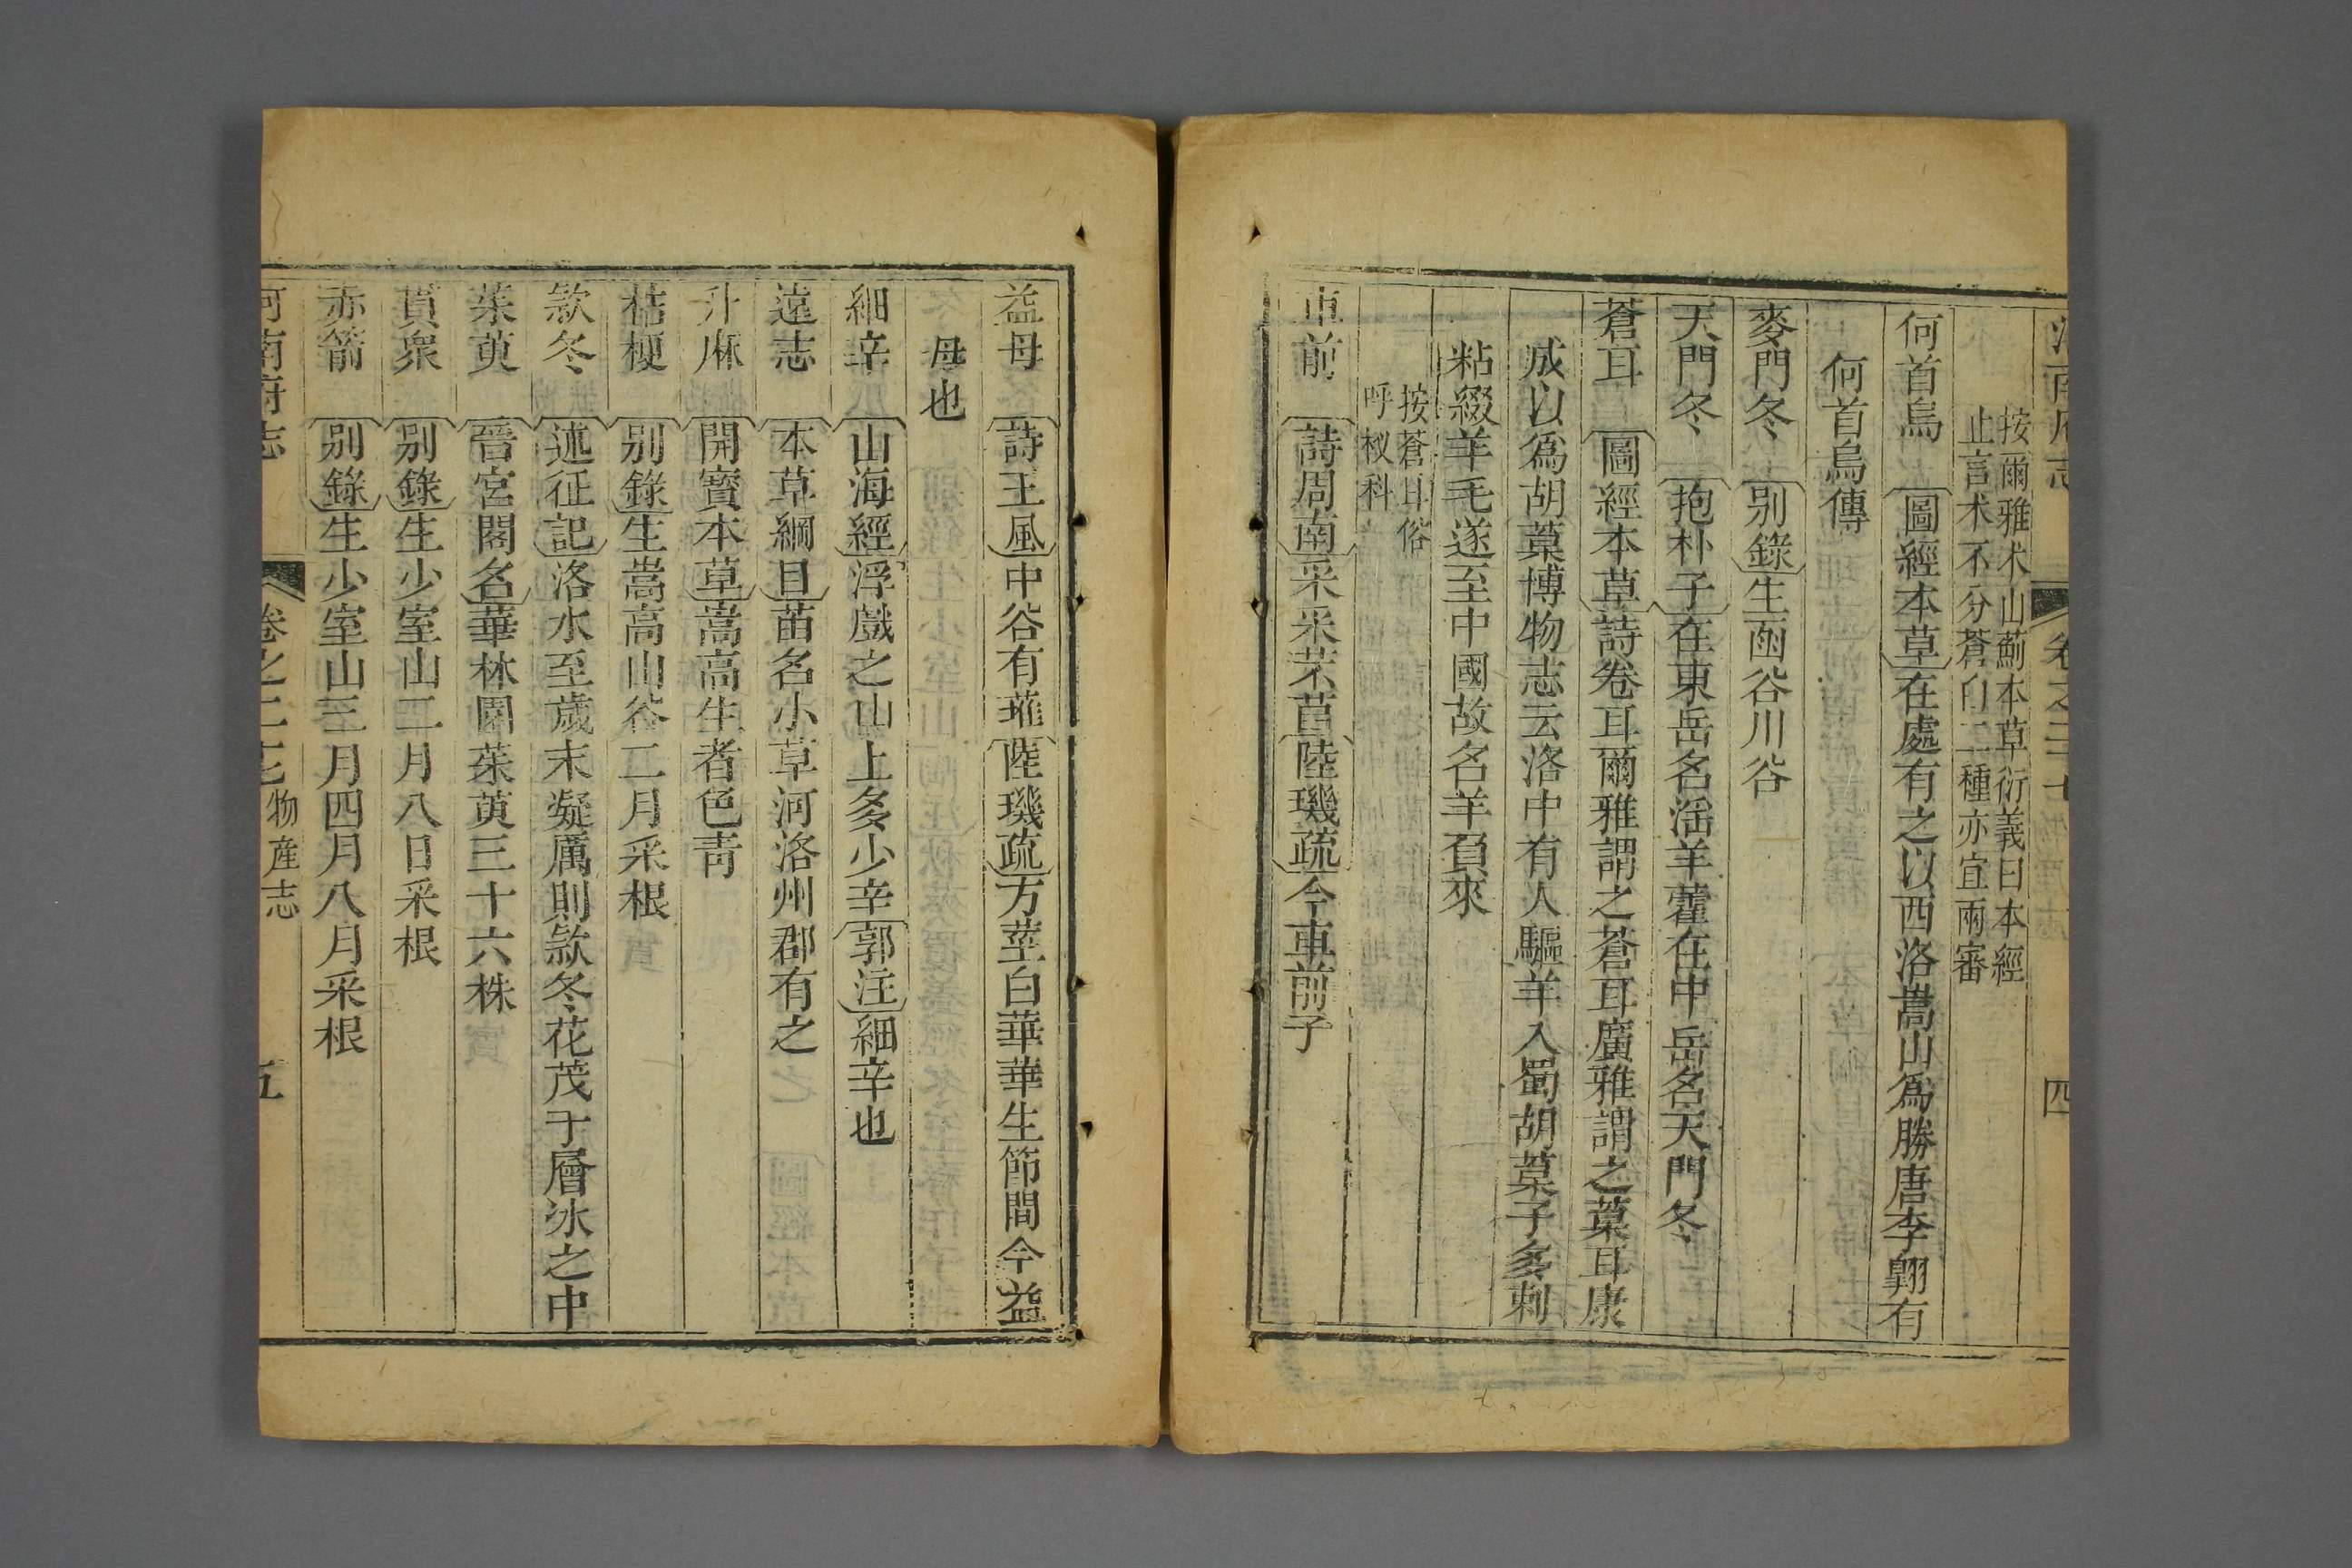 按爾雅术山薊本草衍義曰本經
止言术不分蒼白二種亦宜兩審
何首烏 圖經本草在處有之以西洛嵩山爲勝唐李翺有
何首烏傳
麥門冬 別錄生函谷川谷
天門冬 抱朴子在東岳名淫羊藿在中岳名天門冬
蒼耳 圖經本草詩卷耳爾雅謂之蒼耳廣雅謂之葈耳康
成以爲胡葈博物志云洛中有人驅羊入蜀胡葈子多刺
粘綴羊毛遂至中國故名羊負來
按蒼耳俗
呼科
車前 詩周南采采芣苢陸璣疏今車前子
四
益母 詩王風中谷有蓷陸璣疏方莖白華華生節間今益
母也
細辛 山海經浮戲之山上多少辛郭注細辛也
遠志 本草綱目苗名小草河洛州郡有之
升麻 開寶本草嵩高生者色青
桔梗 別錄生嵩高山谷二月采根
款冬 述征記洛水至歲末凝厲則款冬花茂于層冰之中
茱萸 晉宮閣名華林園茱萸三十六株
貫衆 別錄生少室山二月八日采根
赤箭 別錄生少室山三月四月八月采根
河南府志 卷之二七 物産志 五